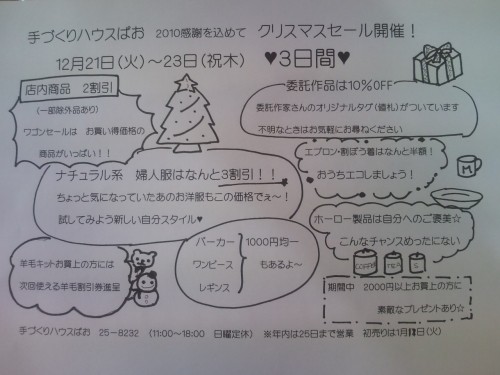 手づくりハウスぱお 2010感謝を込めて クリスマスセール開催！
12月21日（火）～23日（祝木） ♥3日間♥
店内商品 2割引
（一部除外品あり）
ワゴンセールは お買い得価格の
商品がいっぱい！！
委託作品は10％OFF
委託作家さんのオリジナルタグ（値札）がついています
不明なときはお気軽にお尋ねください
ナチュラル系 婦人服はなんと3割引！！
ちょっと気になっていたあのお洋服もこの価格でぇ～！
試してみよう新しい自分スタイル♥
エプロン・割ぽう着はなんと半額！
おうちエコしましょう！
M
ホーロー製品は自分へのご褒美☆
こんなチャンスめったにない
COFFEE
TEA
S
パーカー
ワンピース
レギンス
1000円均一
もあるよ～
羊毛キットお買上の方には
次回使える羊毛割引券進呈
期間中 2000円以上お買上の方に
素敵なプレゼントあり☆
手づくりハウスぱお 25－8232 （11:00～18:00 日曜定休） ※年内は25日まで営業 初売りは1月（火）